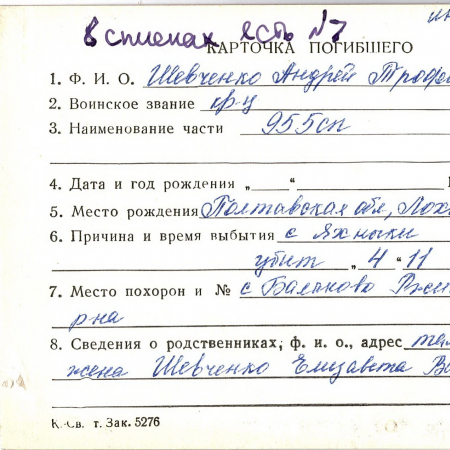 в списках есть №7
КАРТОЧКА ПОГИБШЕГО
1. Ф. И. О. Шевченко Андрей Трофи
2. Воинское звание кр-ц
3. Наименование части 955сп
4. Дата и год рождения „ “
5. Место рождения Полтавская обл, Лох
6. Причина и время выбытия с Яхники
убит „4“ 11
7. Место похорон и № с Балыково Ржи
р-на
8. Сведения о родственниках, ф. и. о., адрес
жена Шевченко Елизавета Ва
К.-Св. т. Зак. 5276